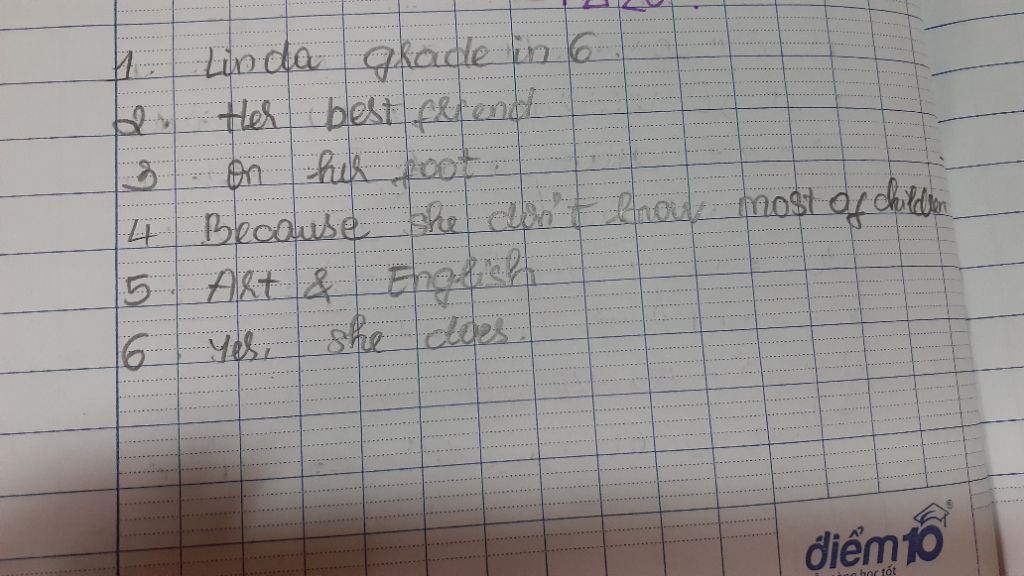 1. Linda grade in 6.
2. Her best friend
3 On her foot.
4 Because she don't know most of children
5. Art & English
6. Yes, she does.
điểm10
học tốt